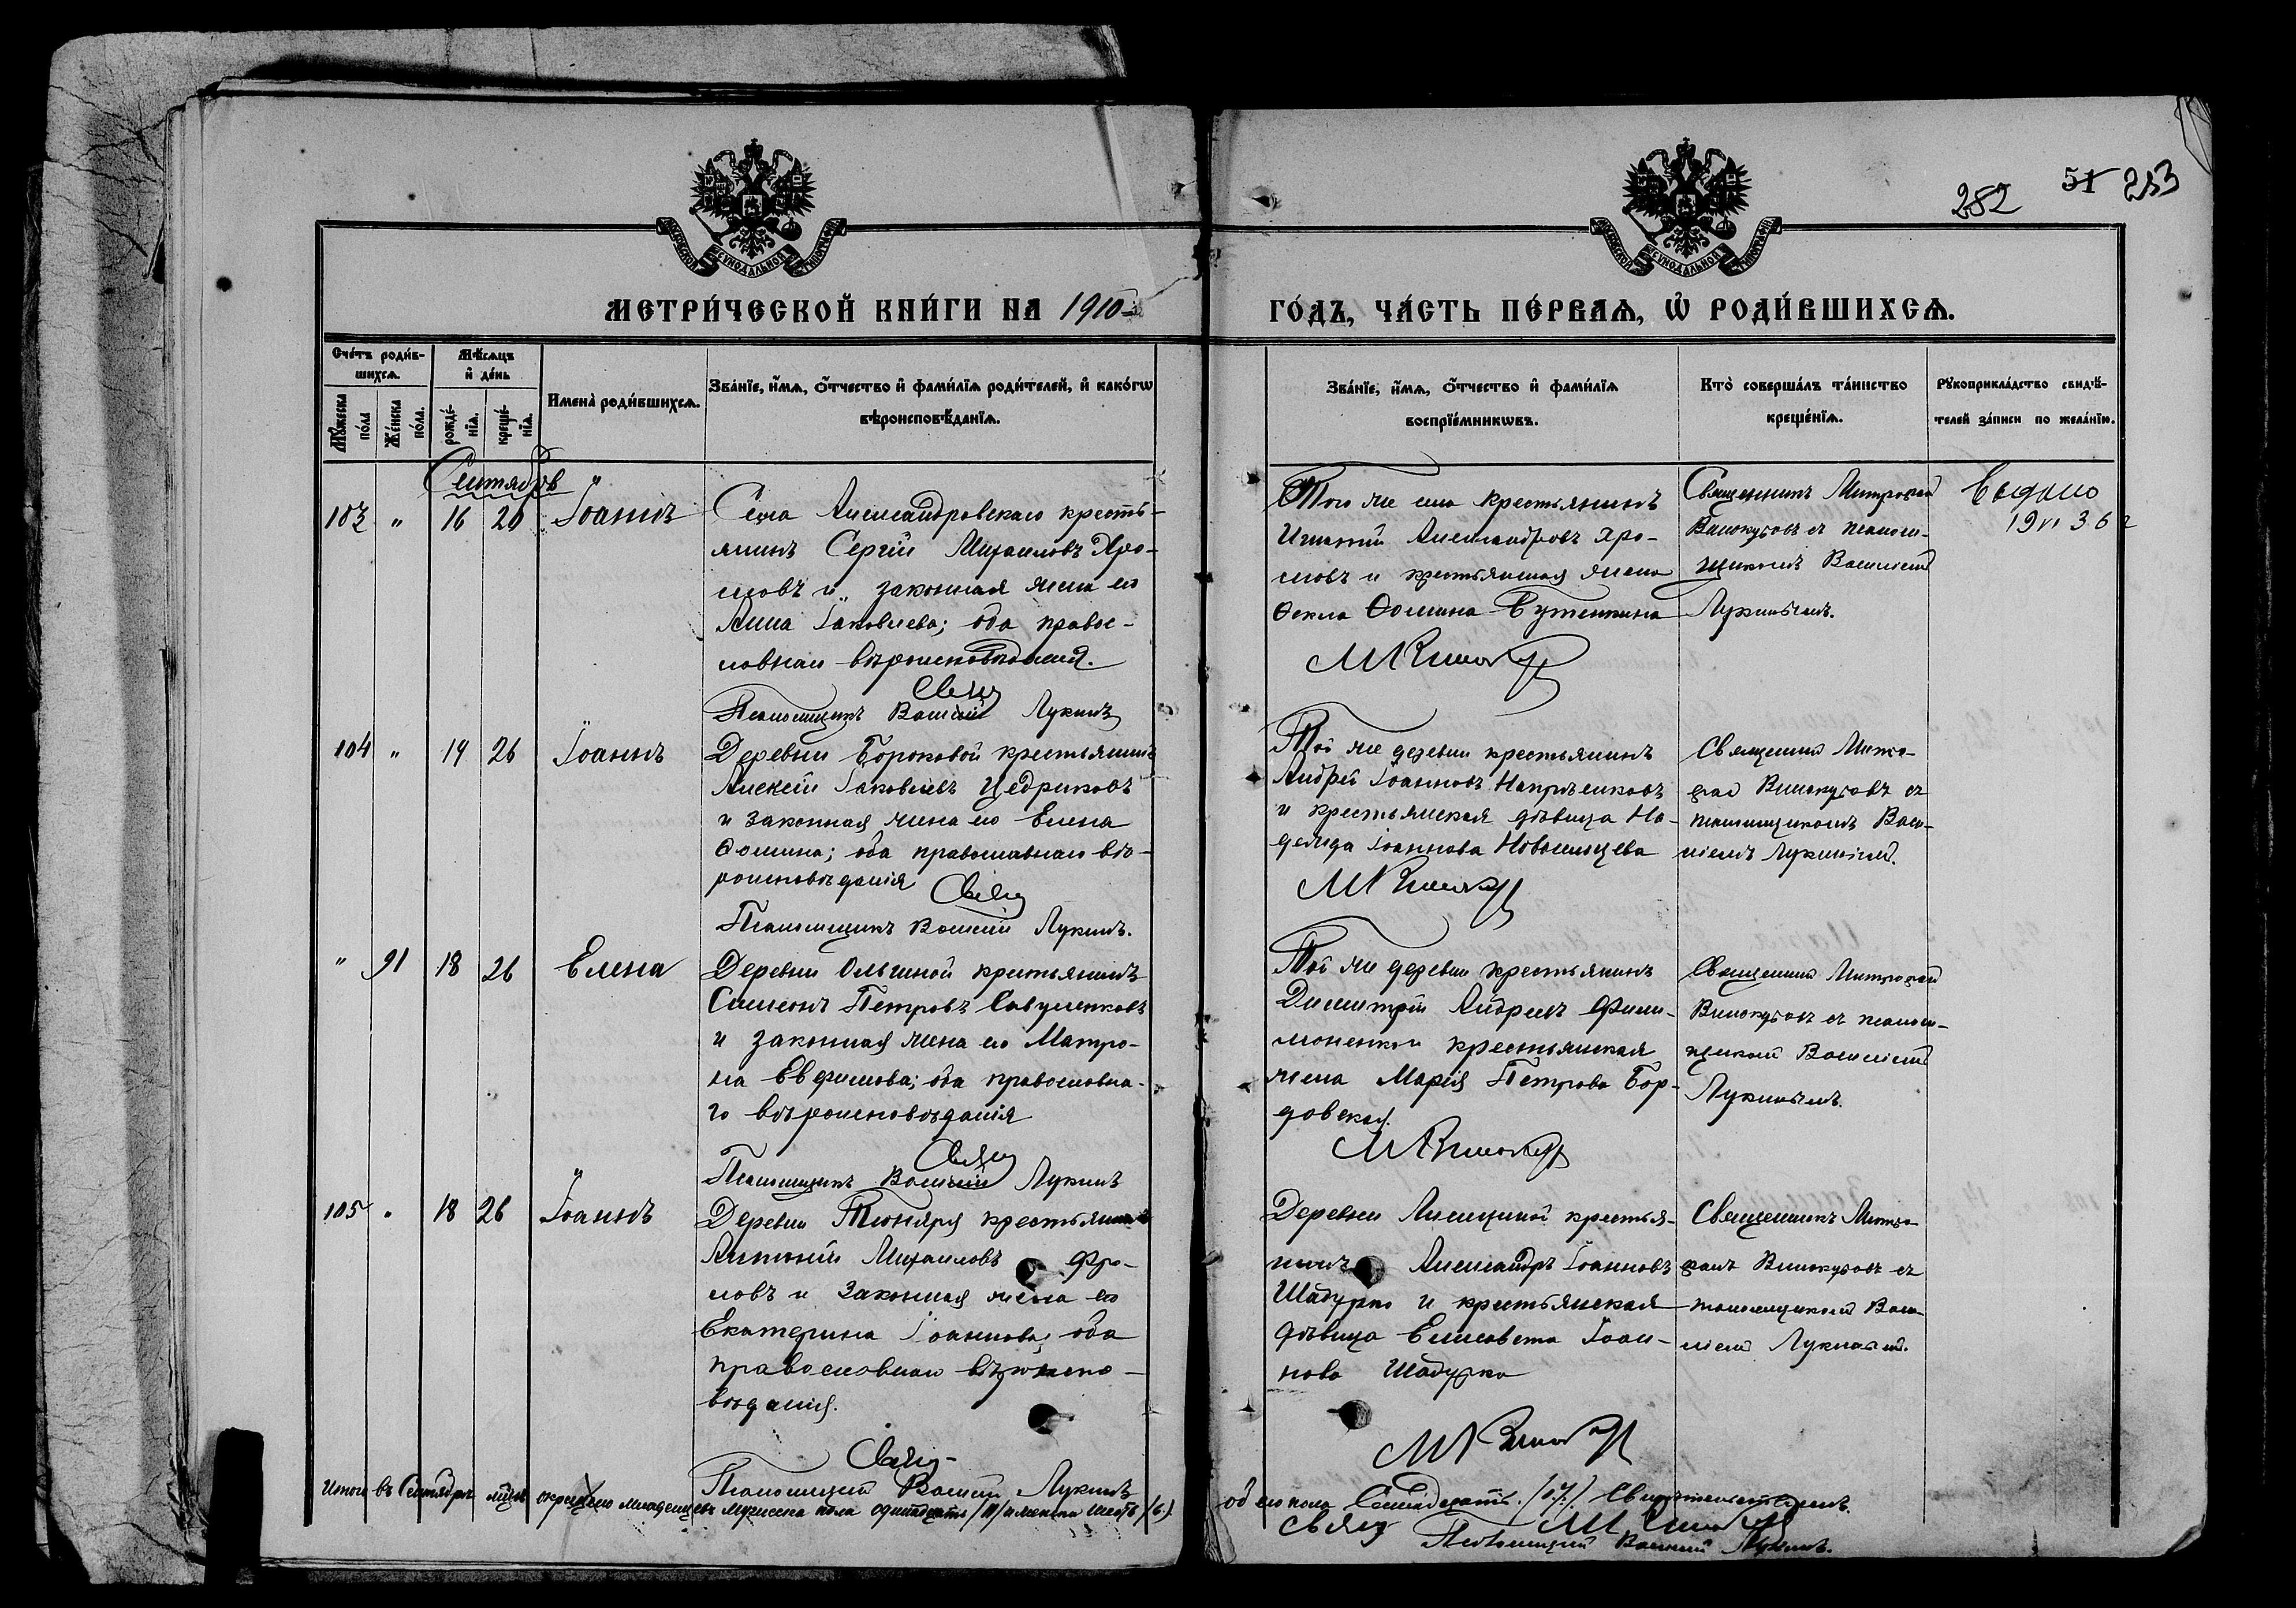 282 51 253
МОСКОВСКОЙ СѴНОДАЛЬНОЙ ТИПОГРАФІИ
МОСКОВСКОЙ СѴНОДАЛЬНОЙ ТИПОГРАФІИ
МЕТРИ́ЧЕСКОЙ КНИ́ГИ НА 1910
ГО́ДЪ, ЧА́СТЬ ПЕ́РВАѦ, Ѡ҆ РОДИ́ВШИХСѦ.
Сче́тъ роди́в-
шихсѧ.
Мѣ́сѧцъ
и҆ де́нь
Мꙋ́жеска по́ла
Же́нска по́ла.
рожде́-
нїѧ.
креще́-
нїѧ.
Имена̀ роди́вшихсѧ.
Зва́нїе, и҆́мѧ, ѻ҆́тчество и҆ фами́лїѧ роди́телей, и҆ како́гѡ
вѣроисповѣ́данїѧ.
Зва́нїе, и҆́мѧ, ѻ҆́тчество и҆ фами́лїѧ
воспрїе́мникѡвъ.
Кто̀ соверша́лъ та́инство
креще́нїѧ.
Рꙋкоприкла́дство свидѣ́-
телей за́писи по жела́нїю.
Сентябрь
103 " 16 20 Іоаннъ
Села Александровскаго кресть-
янинъ Сергій Михаиловъ Хро-
мовъ и законная жена его
Анна Іаковлева; оба правос-
лавнаго вѣроисповѣданія.
Псаломщикъ Василій Лукинъ
Того же села крестьянинъ
Игнатій Александровъ Хро-
мовъ и крестьянская жена
Ѳекла Ѳомина Бутенкина
Священникъ Митрофан
Винокуровъ съ псалом-
щикомъ Василіемъ
Лукинымъ.
Выдано
19 VI 36 г
104 " 14 26 Іоаннъ
Деревни Бороковой крестьянинъ
Алексій Іаковлевъ Цедриковъ
и законная жена его Елена
Ѳомина; оба православнаго вѣ-
роисповѣданія
Псаломщикъ Василій Лукинъ.
Той же деревни крестьянинъ
Андрей Іоанновъ Напрѣенковъ
и крестьянская дѣвица На-
дежда Іоаннова Новосельцева
Священник Митро-
фан Винокуровъ съ
псаломщикомъ Васи-
ліемъ Лукинымъ.
" 91 18 26 Елена
Деревни Ольгиной крестьянинъ
Симеонъ Петровъ Савушенковъ
и законная жена его Матро-
на Евфимова; оба православна-
го вѣроисповѣданія
Псаломщикъ Василій Лукинъ
Той же деревни крестьянинъ
Димитрій Андреевъ Фили-
моненко и крестьянская
жена Марія Петрова Бор-
довская.
Священник Митрофан
Винокуровъ съ псалом-
щиком Василіемъ
Лукинымъ.
105 " 18 26 Іоаннъ
Деревни Тюняря крестьянинъ
Антоній Михаиловъ Фро-
ловъ и законная жена его
Екатерина Іоаннова; оба
православнаго вѣроиспо-
вѣданія.
Псаломщик Василій Лукинъ
Деревни Лисициной крестья-
нинъ Александръ Іоанновъ
Шадурко и крестьянская
дѣвица Елисавета Іоан-
нова Шадурко
Священникъ Митро-
фанъ Винокуровъ съ
псаломщиком Васи-
ліем Лукинымъ.
Итого въ Сентябрѣ мѣсяцѣ окрещено младенцевъ мужеска пола одинадцать /11/ и женска шесть /6/.
обоего пола Семнадцать. /17/. Свидѣтельствуемъ.
Псаломщикъ Василій Лукинъ.